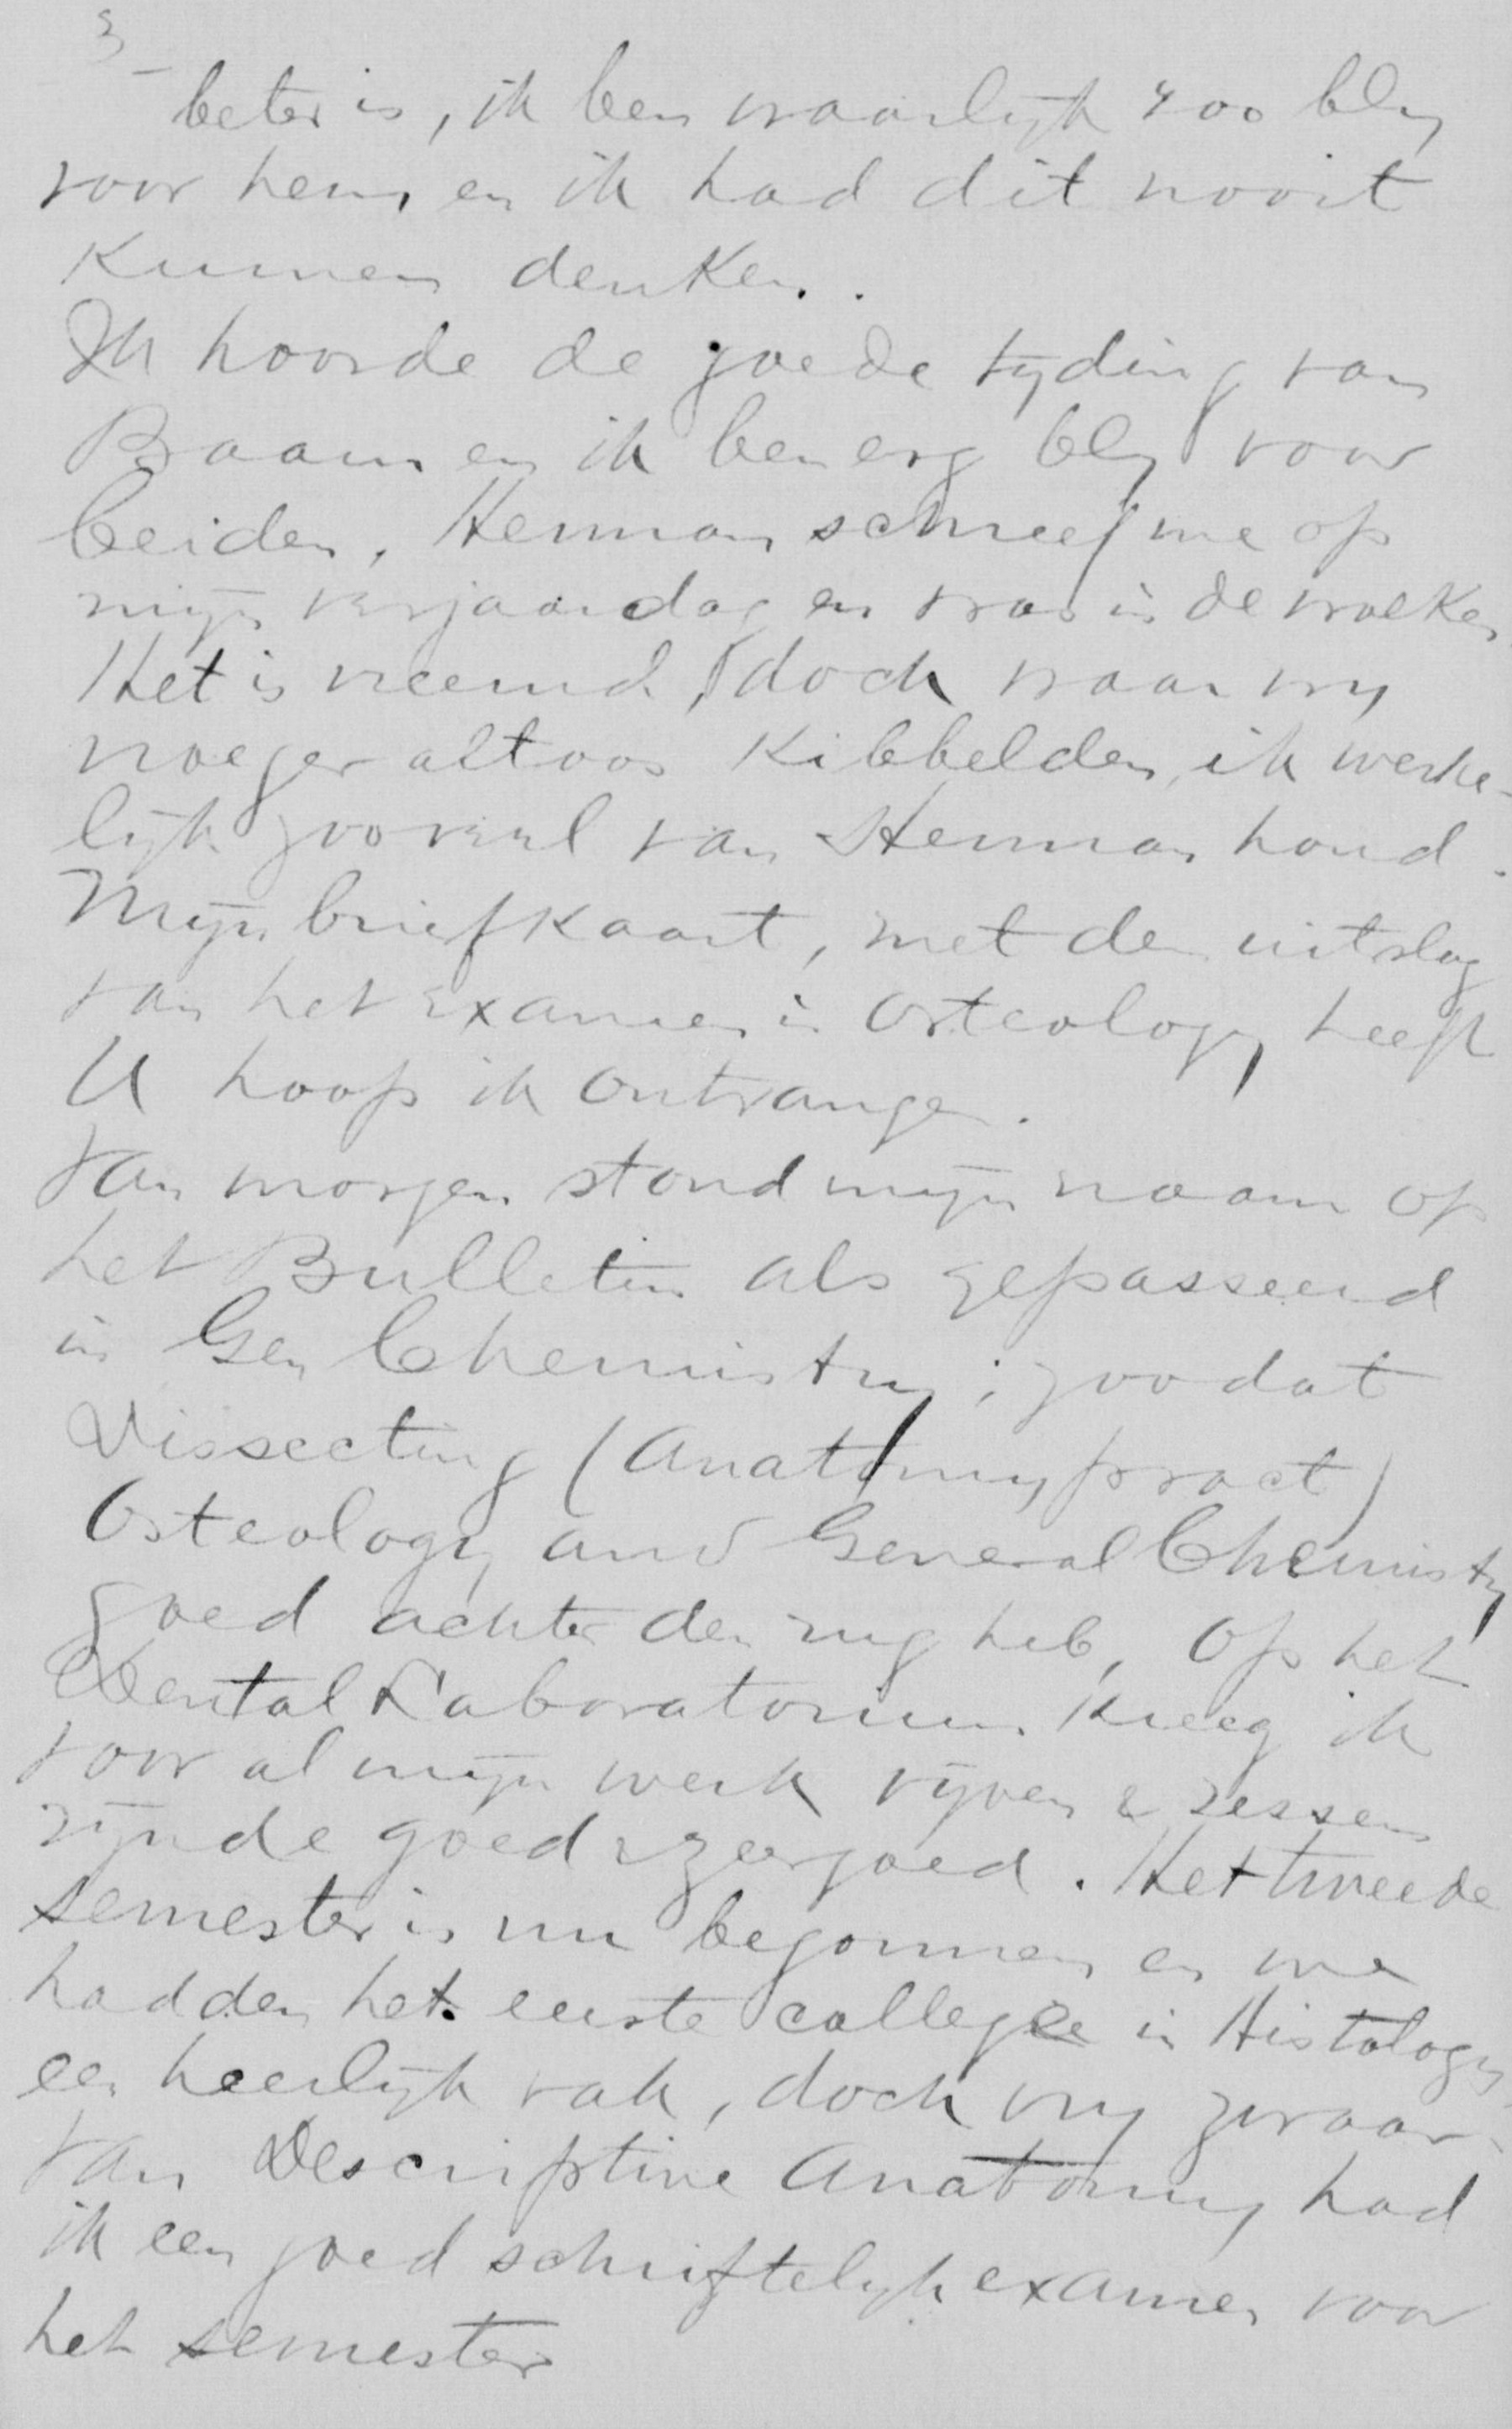 3
beter is, ik ben waarlijk zoo bly
voor hem, en ik had dit nooit
kunnen denken.
Ik hoorde de goede tyding van
Braam en ik ben erg bly voor
beiden. Herman schreef me op
mijn verjaardag en was in de wolken
Het is vreemd, doch waar wy
vroeger altoos kibbelden, ik werke-
lijk zooveel van Herman houd.
Mijn briefkaart, met den uitslag
van het examen in Osteology heeft
U hoop ik ontvangen.
Van morgen stond mijn naam op
het Bulletin als gepasseerd
in Gen Chemistry; zoodat
Dissecting (Anatomy pract)
Osteology and General Chemistry
goed achter den rug heb, Op het
Dental Laboratorium kreeg ik
voor al mijn werk vijven & zessen
zijnde goed & zeergoed. Het tweede
semester is nu begonnen en we
hadden het eerste college in Histology
een heerlijk vak, doch vry zwaar.
Van Descriptive Anatomy had
ik een goed schriftelyk examen voor
het semester